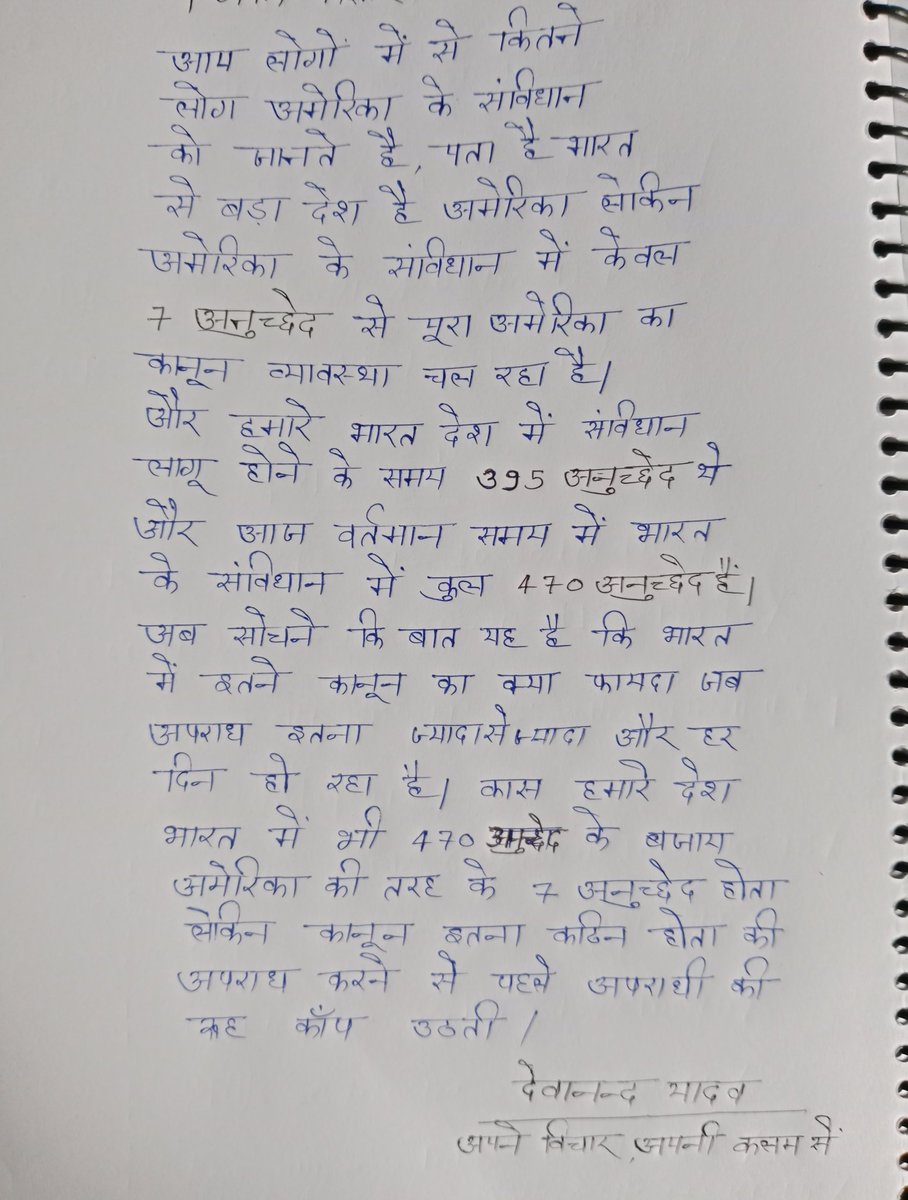 आप लोगों में से कितने
लोग अमेरिका के संविधान
को जानते है, पता है भारत
से बड़ा देश है अमेरिका लेकिन
अमेरिका के संविधान में केवल
7 अनुच्छेद से पूरा अमेरिका का
कानून व्यावस्था चल रहा है।
और हमारे भारत देश में संविधान
लागू होने के समय 395 अनुच्छेद थे
और आज वर्तमान समय में भारत
के संविधान में कुल 470 अनुच्छेद हैं।
अब सोचने कि बात यह है कि भारत
में इतने कानून का क्या फायदा जब
अपराध इतना ज्यादा से ज्यादा और हर
दिन हो रहा है। कास हमारे देश
भारत में भी 470 अनुच्छेद के बजाय
अमेरिका की तरह के 7 अनुच्छेद होता
लेकिन कानून इतना कठिन होता की
अपराध करने से पहले अपराधी की
रूह काँप उठती।
देवानन्द यादव
अपने विचार, अपनी कलम से